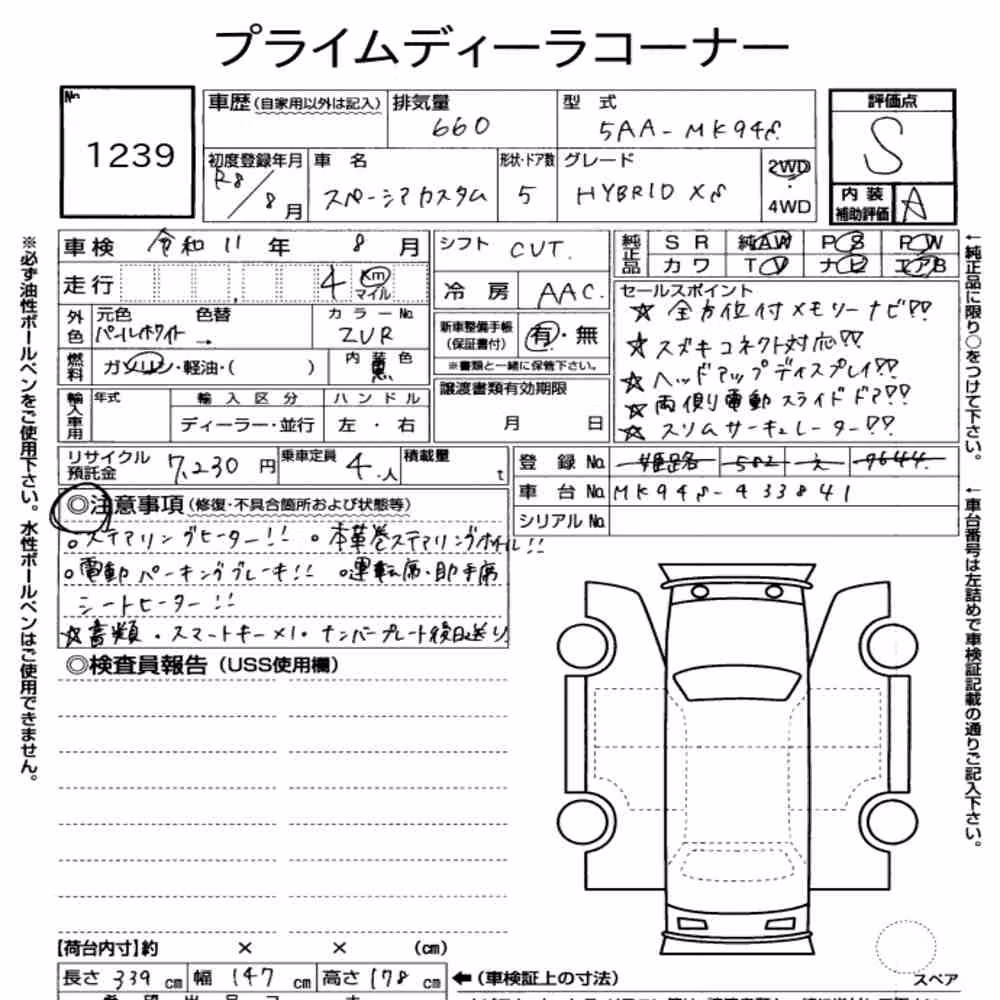 プライムディーラーコーナー
No. 1239
車歴(自家用以外は記入) 排気量 660 型式 5AA-MK94S
評価点 S
初度登録年月 R8/8月 車名 スペーシアカスタム 形状・ドア数 5 グレード HYBRID XS 2WD・4WD
内装補助評価 A
車検 令和11年 8月 シフト CVT. 純正品 SR 純AW PS PW
カワ TV ナビ エアB
走行 4 Km マイル 冷房 AAC.
外色 元色 パールホワイト 色替 → カラーNo. ZVR
新車整備手帳(保証書付) 有・無
※書類と一緒に保管下さい。
燃料 ガソリン・軽油・( ) 内装色 黒
輸入車用 年式 輸入区分 ハンドル
ディーラー・並行 左・右
譲渡書類有効期限
月 日
セールスポイント
☆ 全方位付メモリーナビ!!
☆ スズキコネクト対応!!
☆ ヘッドアップディスプレイ!!
☆ 両側電動スライドドア!!
☆ スリムサーキュレーター!!
リサイクル預託金 7,230円 乗車定員 4.人 積載量 t
登録No. 姫路 582 え 9644
車台No. MK94S-433841
シリアルNo.
◎注意事項(修復・不具合箇所および状態等)
○ステアリングヒーター!! ○本革巻ステアリングホイール!!
○電動パーキングブレーキ!! ○運転席・助手席
シートヒーター!!
☆書類・スマートキー×1・ナンバープレート後日送り
◎検査員報告(USS使用欄)
【荷台内寸】約 × × (cm)
長さ 339 cm 幅 147 cm 高さ 178 cm ←(車検証上の寸法)
スペア
※必ず油性ボールペンをご使用下さい。水性ボールペンはご使用できません。
←純正品に限り○をつけて下さい。
←車台番号は左詰めで車検証記載の通りご記入下さい。